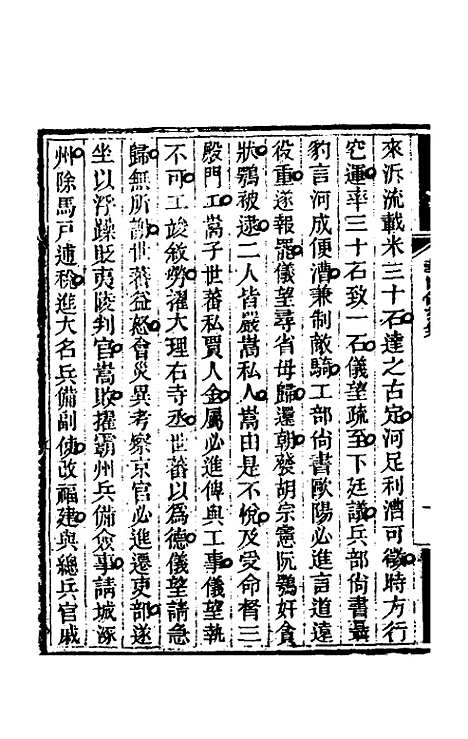 來泝流載米三十石達之古定河足利漕可徵時方行
空運率三十石致一石儀望疏至下廷議兵部尙書聶
豹言河成便漕兼制敵騎工部尙書歐陽必進言道遠
役重遂報罷儀望尋省母歸還朝發胡宗憲阮鶚奸貪
狀鶚被逮二人皆嚴嵩私人嵩由是不悅及受命督三
殿門工嵩子世蕃私賈人金屬必進俾與工事儀望執
不可工竣敘勞擢大理右寺丞世蕃以爲德儀望請急
歸無所謝世蕃益怒會災異考察京官必進遷吏部遂
坐以浮躁貶夷陵判官嵩敗擢霸州兵備僉事請城涿
州除馬戸逋稅進大名兵備副使改福建與總兵官戚